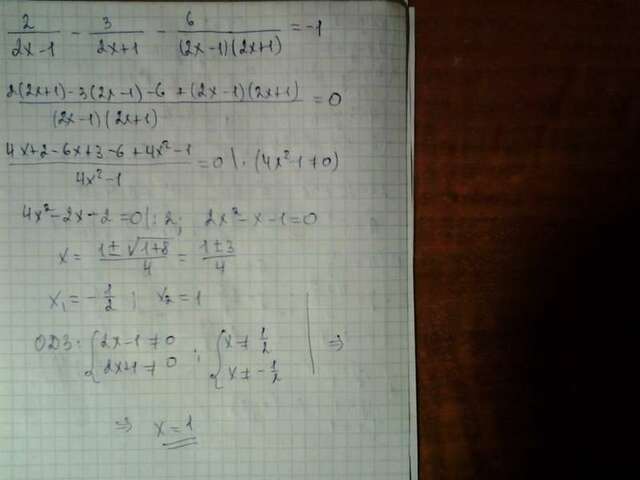 2/(2x-1) - 3/(2x+1) - 6/((2x-1)(2x+1)) = -1
(2(2x+1)-3(2x-1)-6+(2x-1)(2x+1))/((2x-1)(2x+1)) = 0
(4x+2-6x+3-6+4x²-1)/(4x²-1) = 0 | · (4x²-1≠0)
4x²-2x-2=0 |:2; 2x²-x-1=0
x = (1±√(1+8))/4 = (1±3)/4
x₁ = -1/2; x₂ = 1
ОДЗ: { 2x-1≠0 2x+1≠0 ; { x≠1/2 x≠-1/2 | ⇒
⇒ x=1